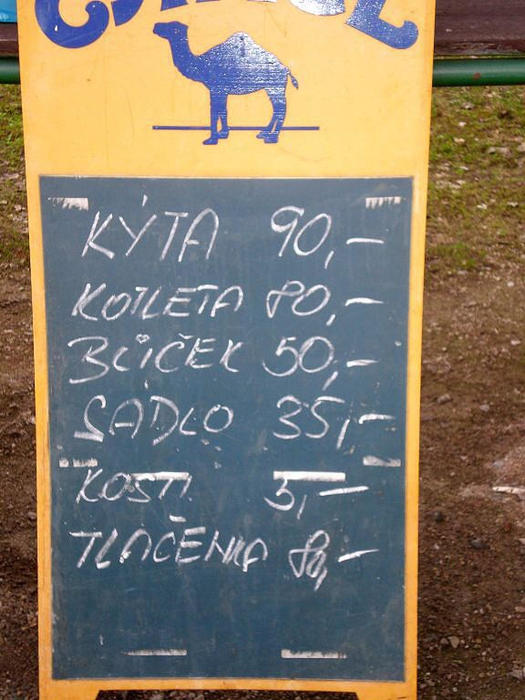 KÝTA 90,-
KOTLETA 80,-
BŮČEK 50,-
SÁDLO 35,-
KOSTI 5,-
TLAČENKA 80,-